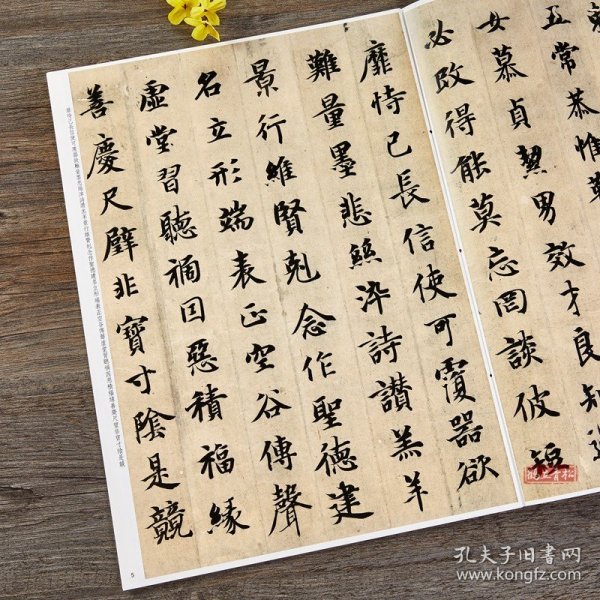 五常恭惟
女慕貞絜男效才良知過
必改得能莫忘罔談彼短
靡恃己長信使可覆器欲
難量墨悲絲染詩讚羔羊
景行維賢剋念作聖德建
名立形端表正空谷傳聲
虛堂習聽禍因惡積福緣
善慶尺璧非寶寸陰是競
5
孔夫子旧书网
www.kongfz.com